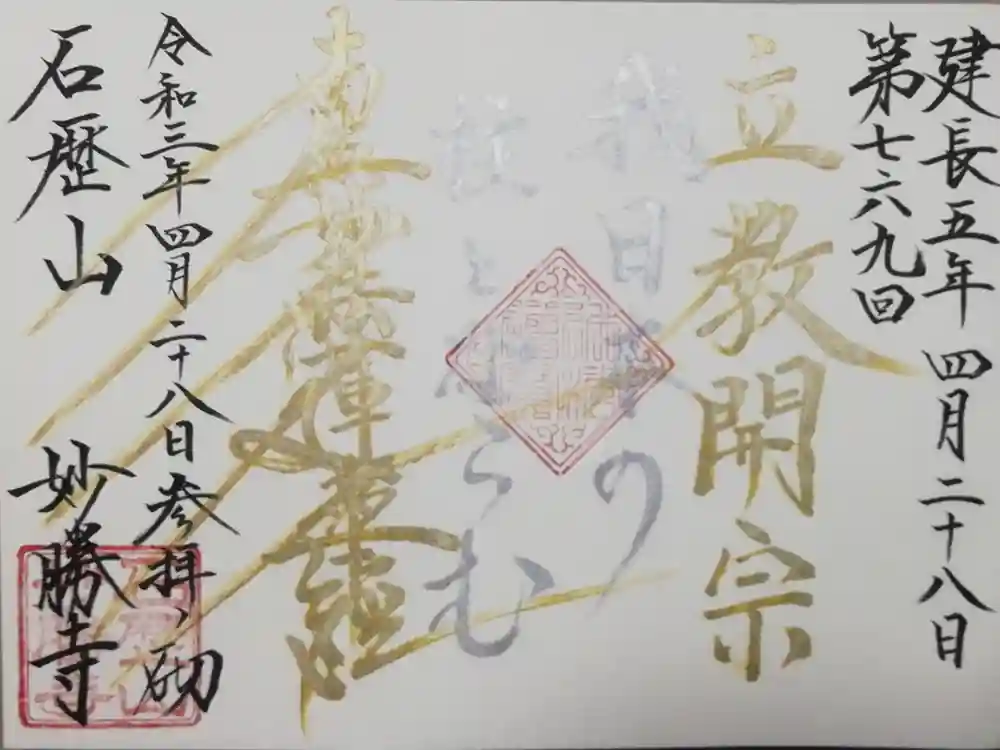 建長五年 四月二十八日
第七六九回
立教開宗
我日本の
柱とならむ
南無妙法蓮華経
令和三年四月二十八日参拝ノ砌
石歴山 妙勝寺